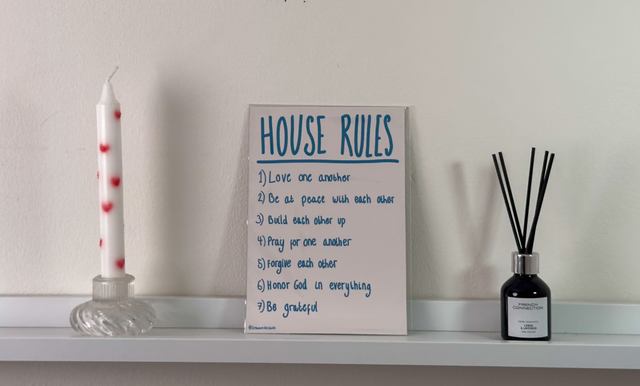 HOUSE RULES
1) Love one another
2) Be at peace with each other
3) Build each other up
4) Pray for one another
5) Forgive each other
6) Honor God in everything
7) Be grateful
FRENCH
CONNECTION